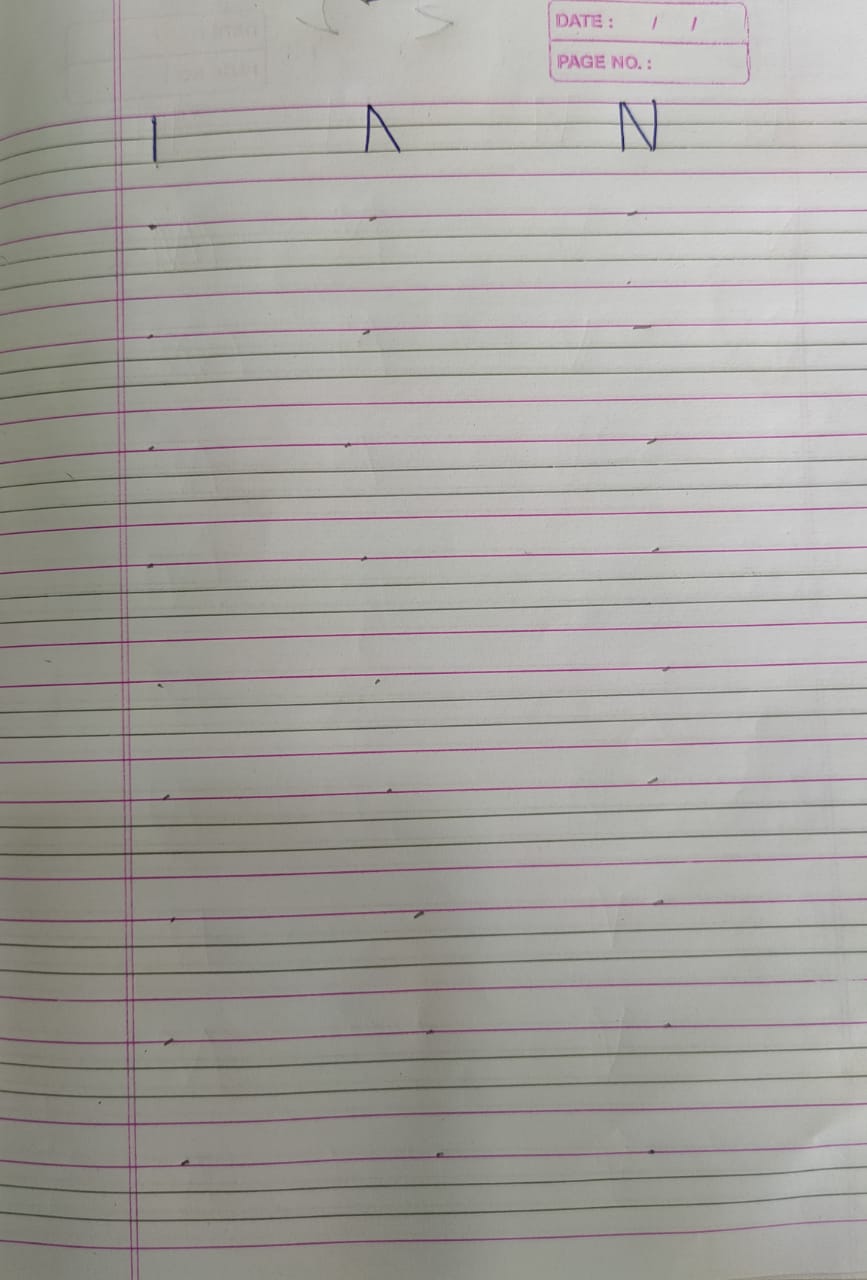 DATE : / /
PAGE NO. :
I Λ N